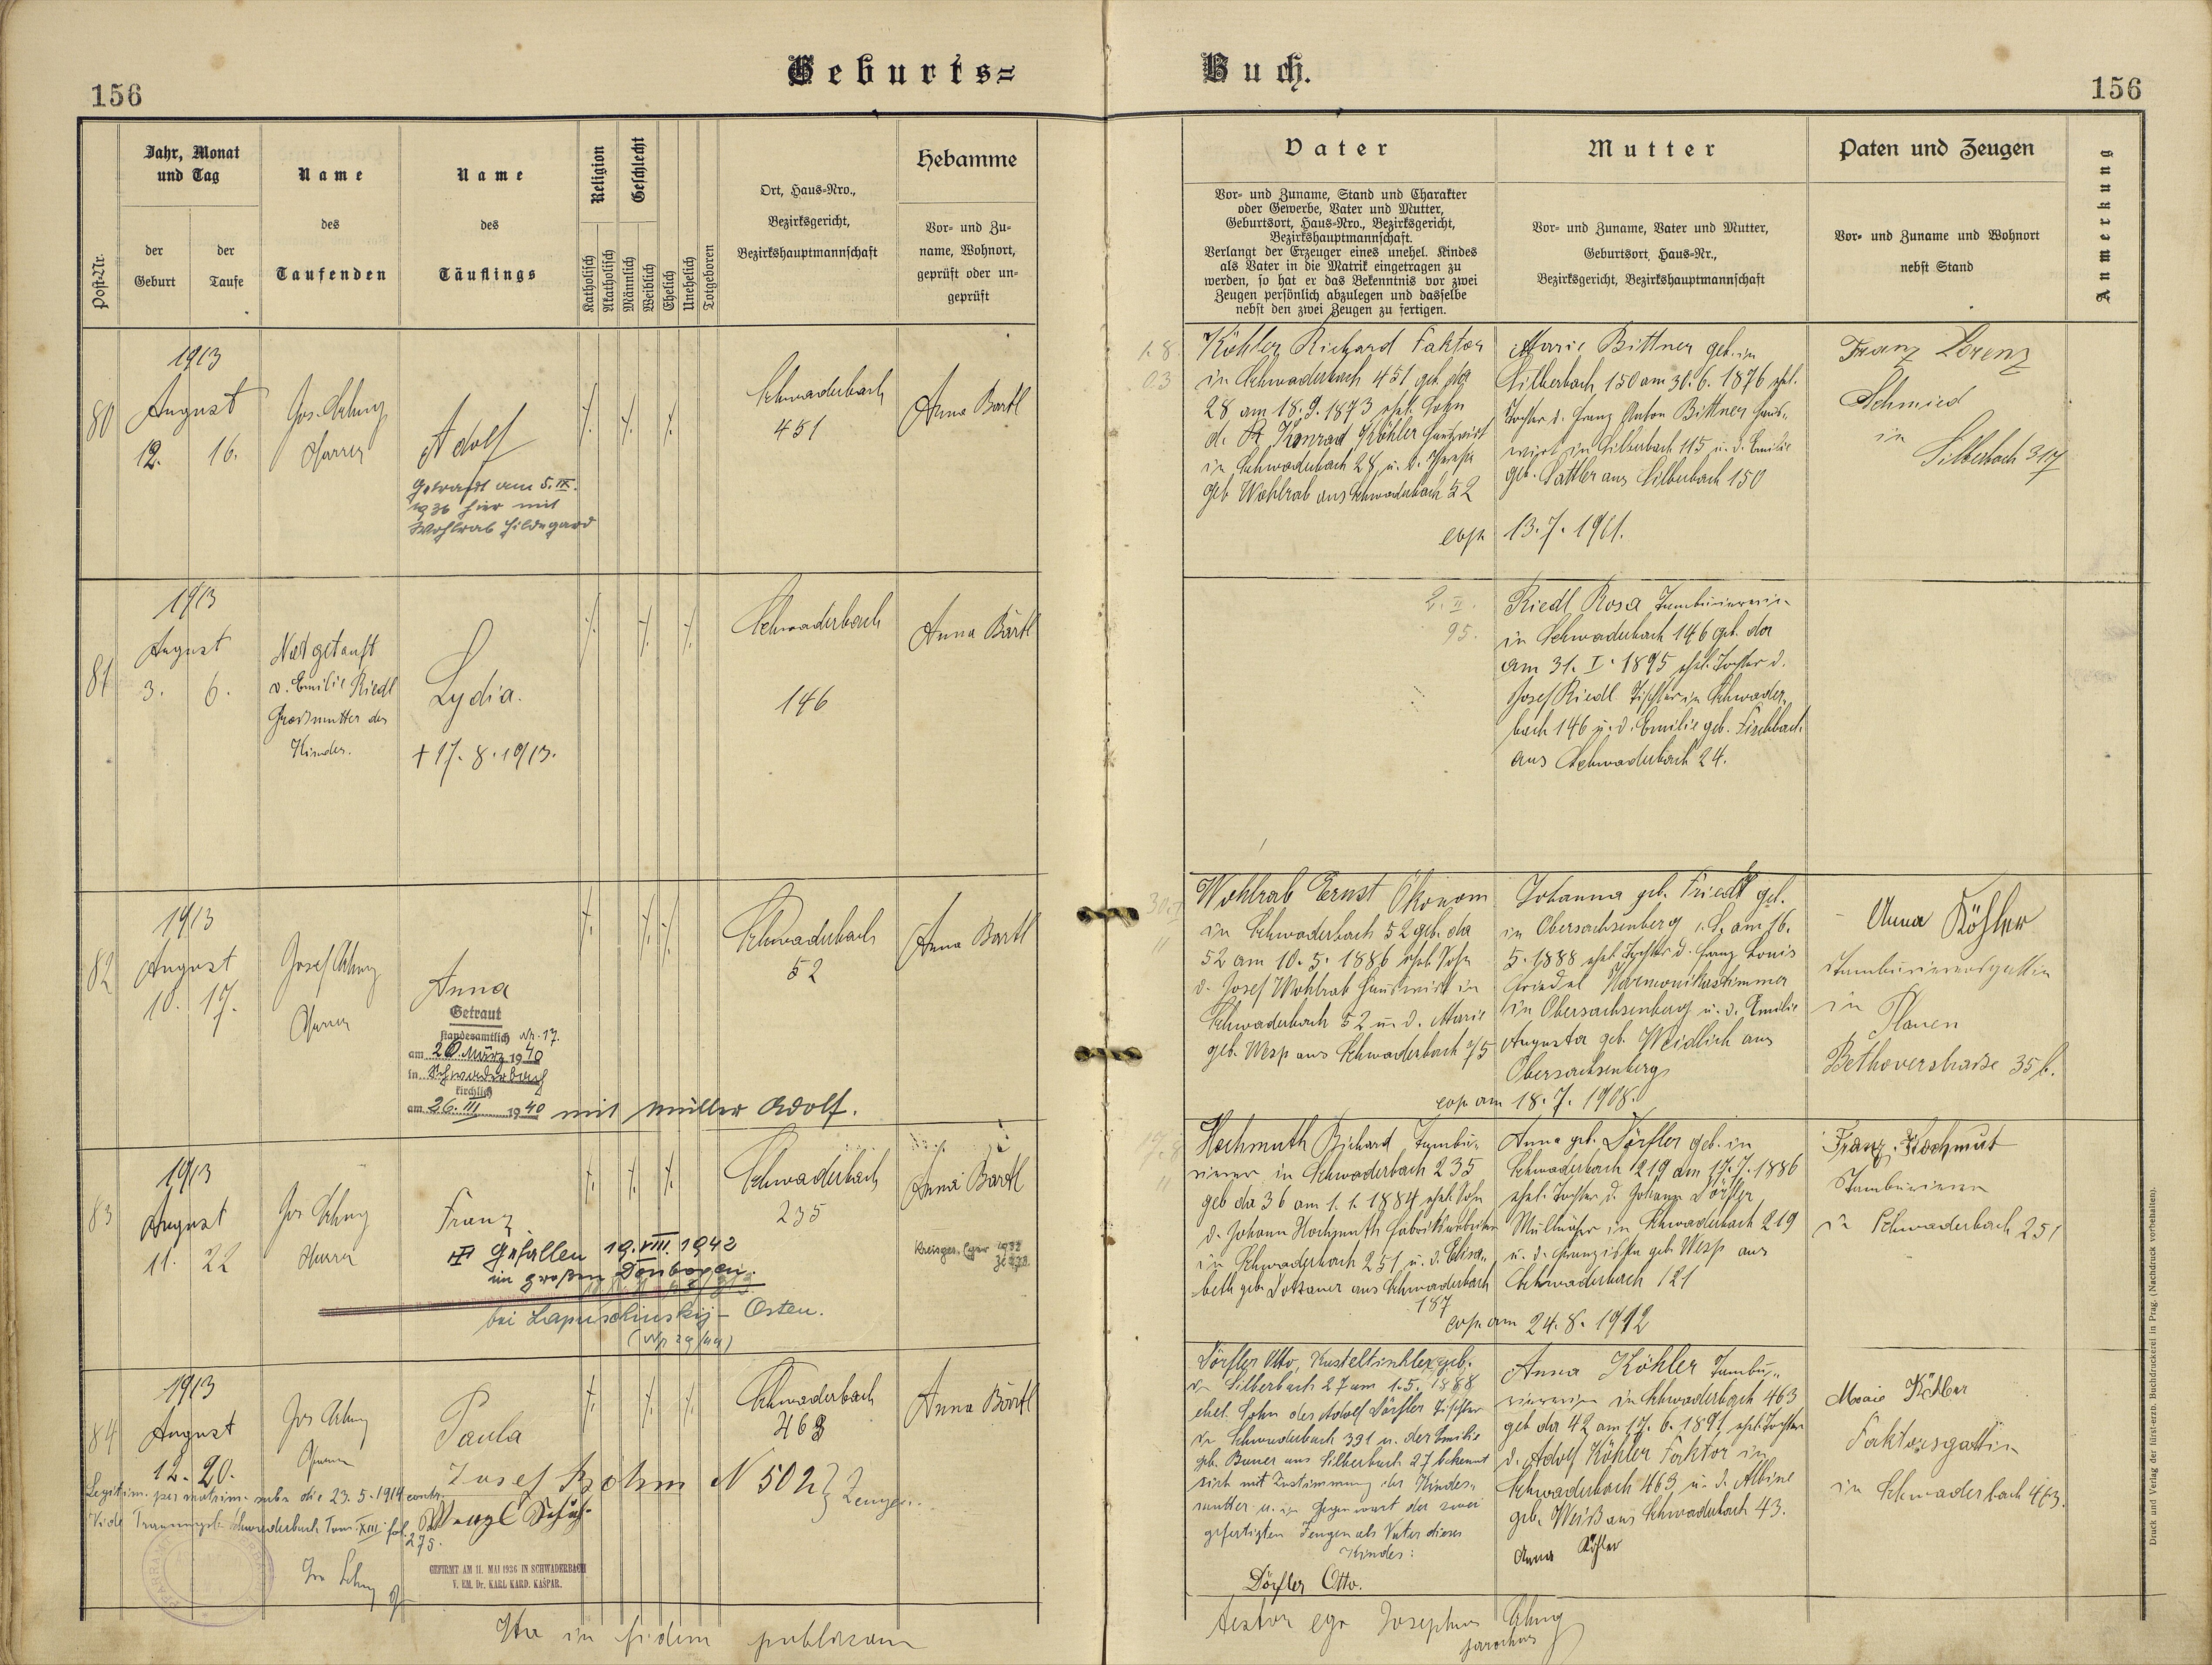 156
Geburts=
Buch.
156
Post-Nr.
Jahr, Monat
und Tag
der
Geburt
der
Taufe
Name
des
Taufenden
Name
des
Täuflings
Religion
Katholisch
Akatholisch
Geschlecht
Männlich
Weiblich
Ehelich
Unehelich
Totgeboren
Ort, Haus-Nro.,
Bezirksgericht,
Bezirkshauptmannschaft
Hebamme
Vor- und Zu-
name, Wohnort,
geprüft oder un-
geprüft
Vater
Vor- und Zuname, Stand und Charakter
oder Gewerbe, Vater und Mutter,
Geburtsort, Haus-Nro., Bezirksgericht,
Bezirkshauptmannschaft.
Verlangt der Erzeuger eines unehel. Kindes
als Vater in die Matrik eingetragen zu
werden, so hat er das Bekenntnis vor zwei
Zeugen persönlich abzulegen und dasselbe
nebst den zwei Zeugen zu fertigen.
Mutter
Vor- und Zuname, Vater und Mutter,
Geburtsort, Haus-Nr.,
Bezirksgericht, Bezirkshauptmannschaft
Paten und Zeugen
Vor- und Zuname und Wohnort
nebst Stand
Anmerkung
80
1913
August
12. 16.
Pfarrer
Adolf
Getraut am 5. IX.
1936 hier mit
Wohlrab Hildegard
Schwaderbach
451
Anna Bartl
Köhler Richard Faktor
in Schwaderbach 451 geb. da
28 am 18.9.1873 ehel. Sohn
d. Konrad Köhler Hauswirt
in Schwaderbach 28 u. d. Theresia
geb. Wohlrab aus Schwaderbach 52
Marie Bittner geb. in
Silberbach 150 am 30.6.1876 ehel.
Tochter d. Franz Anton Bittner Haus-
wirt in Silberbach 115 u. d. Emilie
geb. Sattler aus Silberbach 150
cop. 13.7.1901.
Franz Lorenz
Schmied
in
Silberbach 317
81
1913
August
3. 6.
Notgetauft
v. Emilie Riedl
Grossmutter des
Kindes.
Lydia.
+ 17. 8. 1913.
Schwaderbach
146
Anna Bartl
2. II.
95.
Riedl Rosa Tambouriererin
in Schwaderbach 146 geb. da
am 31. I. 1895 ehel. Tochter d.
Josef Riedl Tischler in Schwader-
bach 146 u. d. Emilie geb. Fischbach
aus Schwaderbach 24.
82
1913
August
10. 17.
Josef
Pfarrer
Anna
Getraut
standesamtlich Nr. 17.
am 20. März 1940
in Schwaderbach
kirchlich
am 26. III 1940 mit Müller Adolf.
Schwaderbach
52
Anna Bartl
Wohlrab Ernst Ökonom
in Schwaderbach 52 geb. da
52 am 10. 5. 1886 ehel. Sohn
d. Josef Wohlrab Hauswirt in
Schwaderbach 52 u. d. Marie
geb. Wesp aus Schwaderbach 75
Johanna geb. Friedl geb.
in Obersachsenberg i. S. am 16.
5. 1888 ehel. Tochter d. Franz Louis
Friedel Harmonikastimmer
in Obersachsenberg u. d. Emilie
Augusta geb. Weidlich aus
Obersachsenberg
cop. am 18. 7. 1908.
Anna Köhler
in
Plauen
Bethoverstraße 35 b.
83
1913
August
11. 22
Pfarrer
Franz
Gefallen 19. VIII. 1942
im großen Donbogen.
bei Lapuschinskij - Osten.
Schwaderbach
235
Anna Bartl
Hochmuth Richard Tambou-
rierer in Schwaderbach 235
geb. da 36 am 1. 1. 1884 ehel. Sohn
d. Johann Hochmuth Fabriksarbeiter
in Schwaderbach 251 u. d. Elisa-
beth geb. Dotzauer aus Schwaderbach
187
Anna geb. Dörfler geb. in
Schwaderbach 219 am 17. 7. 1886
ehel. Tochter d. Johann Dörfler
in Schwaderbach 219
u. d. Franziska geb. Wesp aus
Schwaderbach 121
cop. am 24. 8. 1912
Franz Hochmut
Tambourierer
in Schwaderbach 251
84
1913
August
12. 20.
Pfarrer
Paula
Schwaderbach
463
Anna Bartl
Josef Bohm N 502 } Zeugen.
Wenzl
Legitim. per matrim. sub die 23. 5. 1914 contr.
Vide Trauungsb. Schwaderbach Tom. XIII fol.
275.
GEFIRMT AM 11. MAI 1936 IN SCHWADERBACH
V. EM. Dr. KARL KARD. KAŠPAR.
Dörfler Otto, geb.
in Silberbach 27 am 1. 5. 1888
ehel. Sohn des Adolf Dörfler Tischler
in Schwaderbach 391 u. der Emilie
geb. Bauer aus Silberbach 27 bekennt
sich mit Zustimmung der Kindes-
mutter u. in Gegenwart der zwei
gefertigten Zeugen als Vater dieses
Kindes:
Dörfler Otto.
Anna Köhler Tambou-
riererin in Schwaderbach 463
geb. da 42 am 17. 6. 1891 ehel. Tochter
d. Adolf Köhler Faktor in
Schwaderbach 463 u. d. Albine
geb. Weiß aus Schwaderbach 43.
Anna Köhler
Marie Köhler
Faktorsgattin
in Schwaderbach 463.
Ita in fidem publicam
testor ego Josephus
parochus
Druck und Verlag der fürst-erzb. Buchdruckerei in Prag. (Nachdruck vorbehalten).